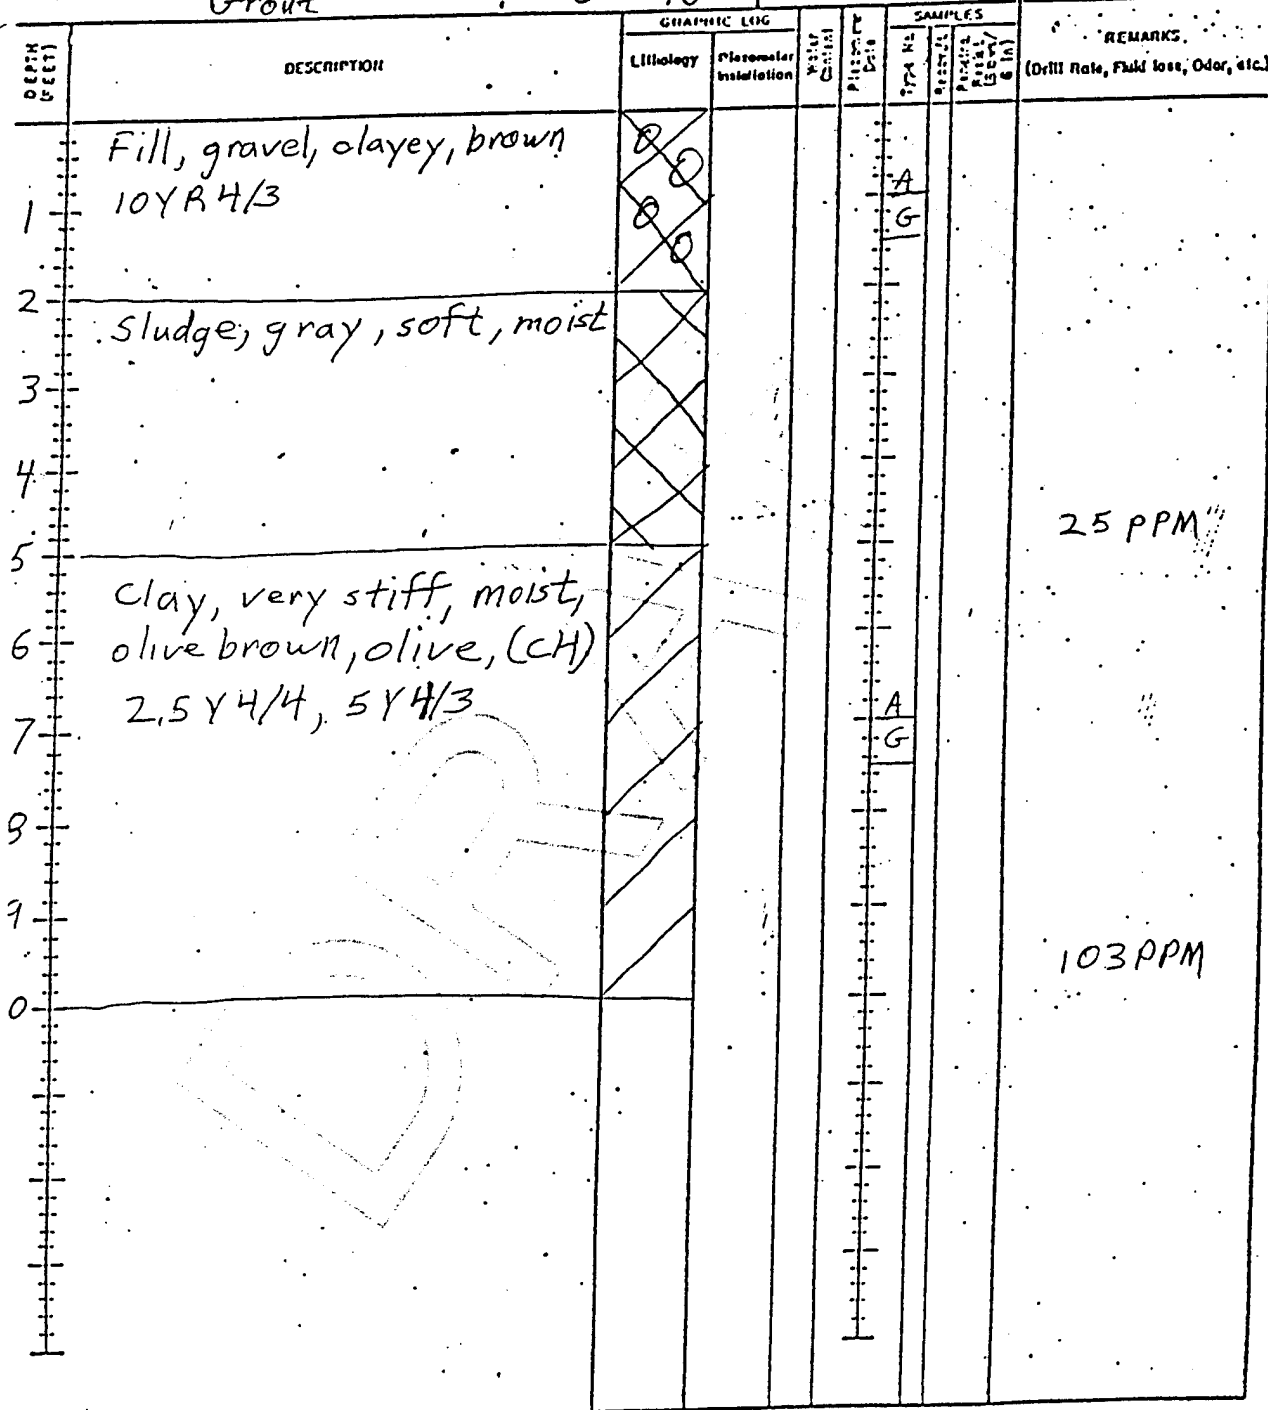 Grout
DEPTH (FEET)
DESCRIPTION
GRAPHIC LOG
Lithology
Piezometer Installation
Water Content
SAMPLES
Type No.
REMARKS.
(Drill Rate, Fluid loss, Odor, etc.)
Fill, gravel, clayey, brown
10YR 4/3
A
1
G
2
Sludge, gray, soft, moist
3
4
25 PPM
5
Clay, very stiff, moist,
6
olive brown, olive, (CH)
2.5Y 4/4, 5Y 4/3
A
7
G
8
9
103 PPM
0